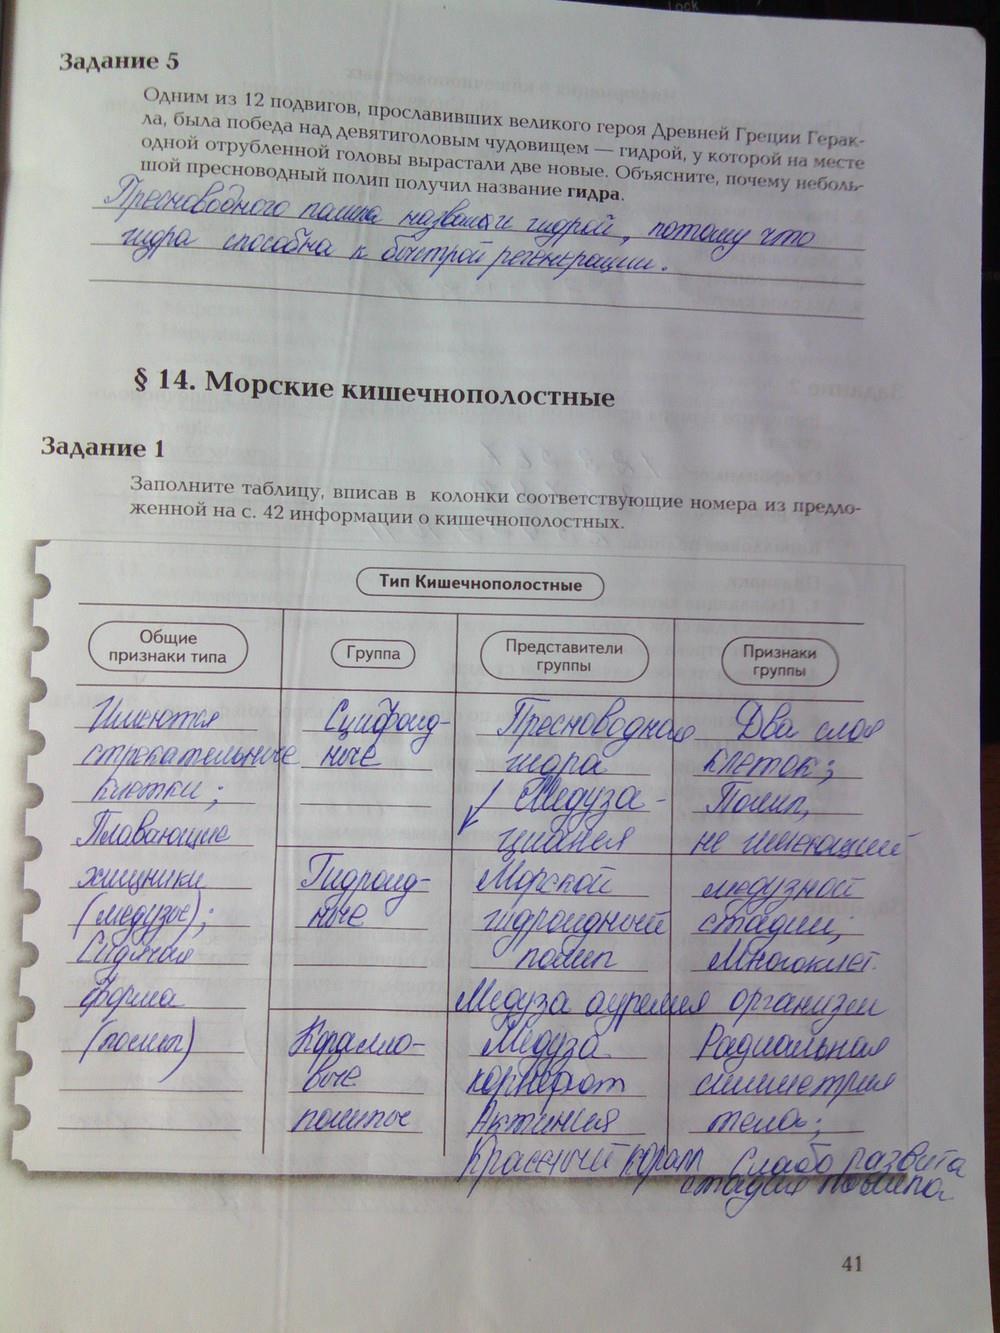 Задание 5
Одним из 12 подвигов, прославивших великого героя Древней Греции Герак-
ла, была победа над девятиголовым чудовищем — гидрой, у которой на месте
одной отрубленной головы вырастали две новые. Объясните, почему неболь-
шой пресноводный полип получил название гидра.
Пресноводного полипа назвали гидрой, потому что
гидра способна к быстрой регенерации.
§ 14. Морские кишечнополостные
Задание 1
Заполните таблицу, вписав в колонки соответствующие номера из предло-
женной на с. 42 информации о кишечнополостных.
Тип Кишечнополостные
Общие признаки типа
Группа
Представители группы
Признаки группы
Имеются
стрекательные
клетки;
Плавающие
хищники
(медузы);
Сидячая
форма
(полип)
Сцифоид-
ные
Пресноводная
гидра
Медуза-
цианея
Два слоя
клеток;
Полип,
не имеющий
Гидроид-
ные
Морской
гидроидный
полип
Медуза аурелия
медузной
стадии;
Многоклет.
организм
Коралло-
вые
полипы
Медуза
корнерот
Актиния
Красный коралл
Радиальная
симметрия
тела;
Слабо развита
стадия полипа
41